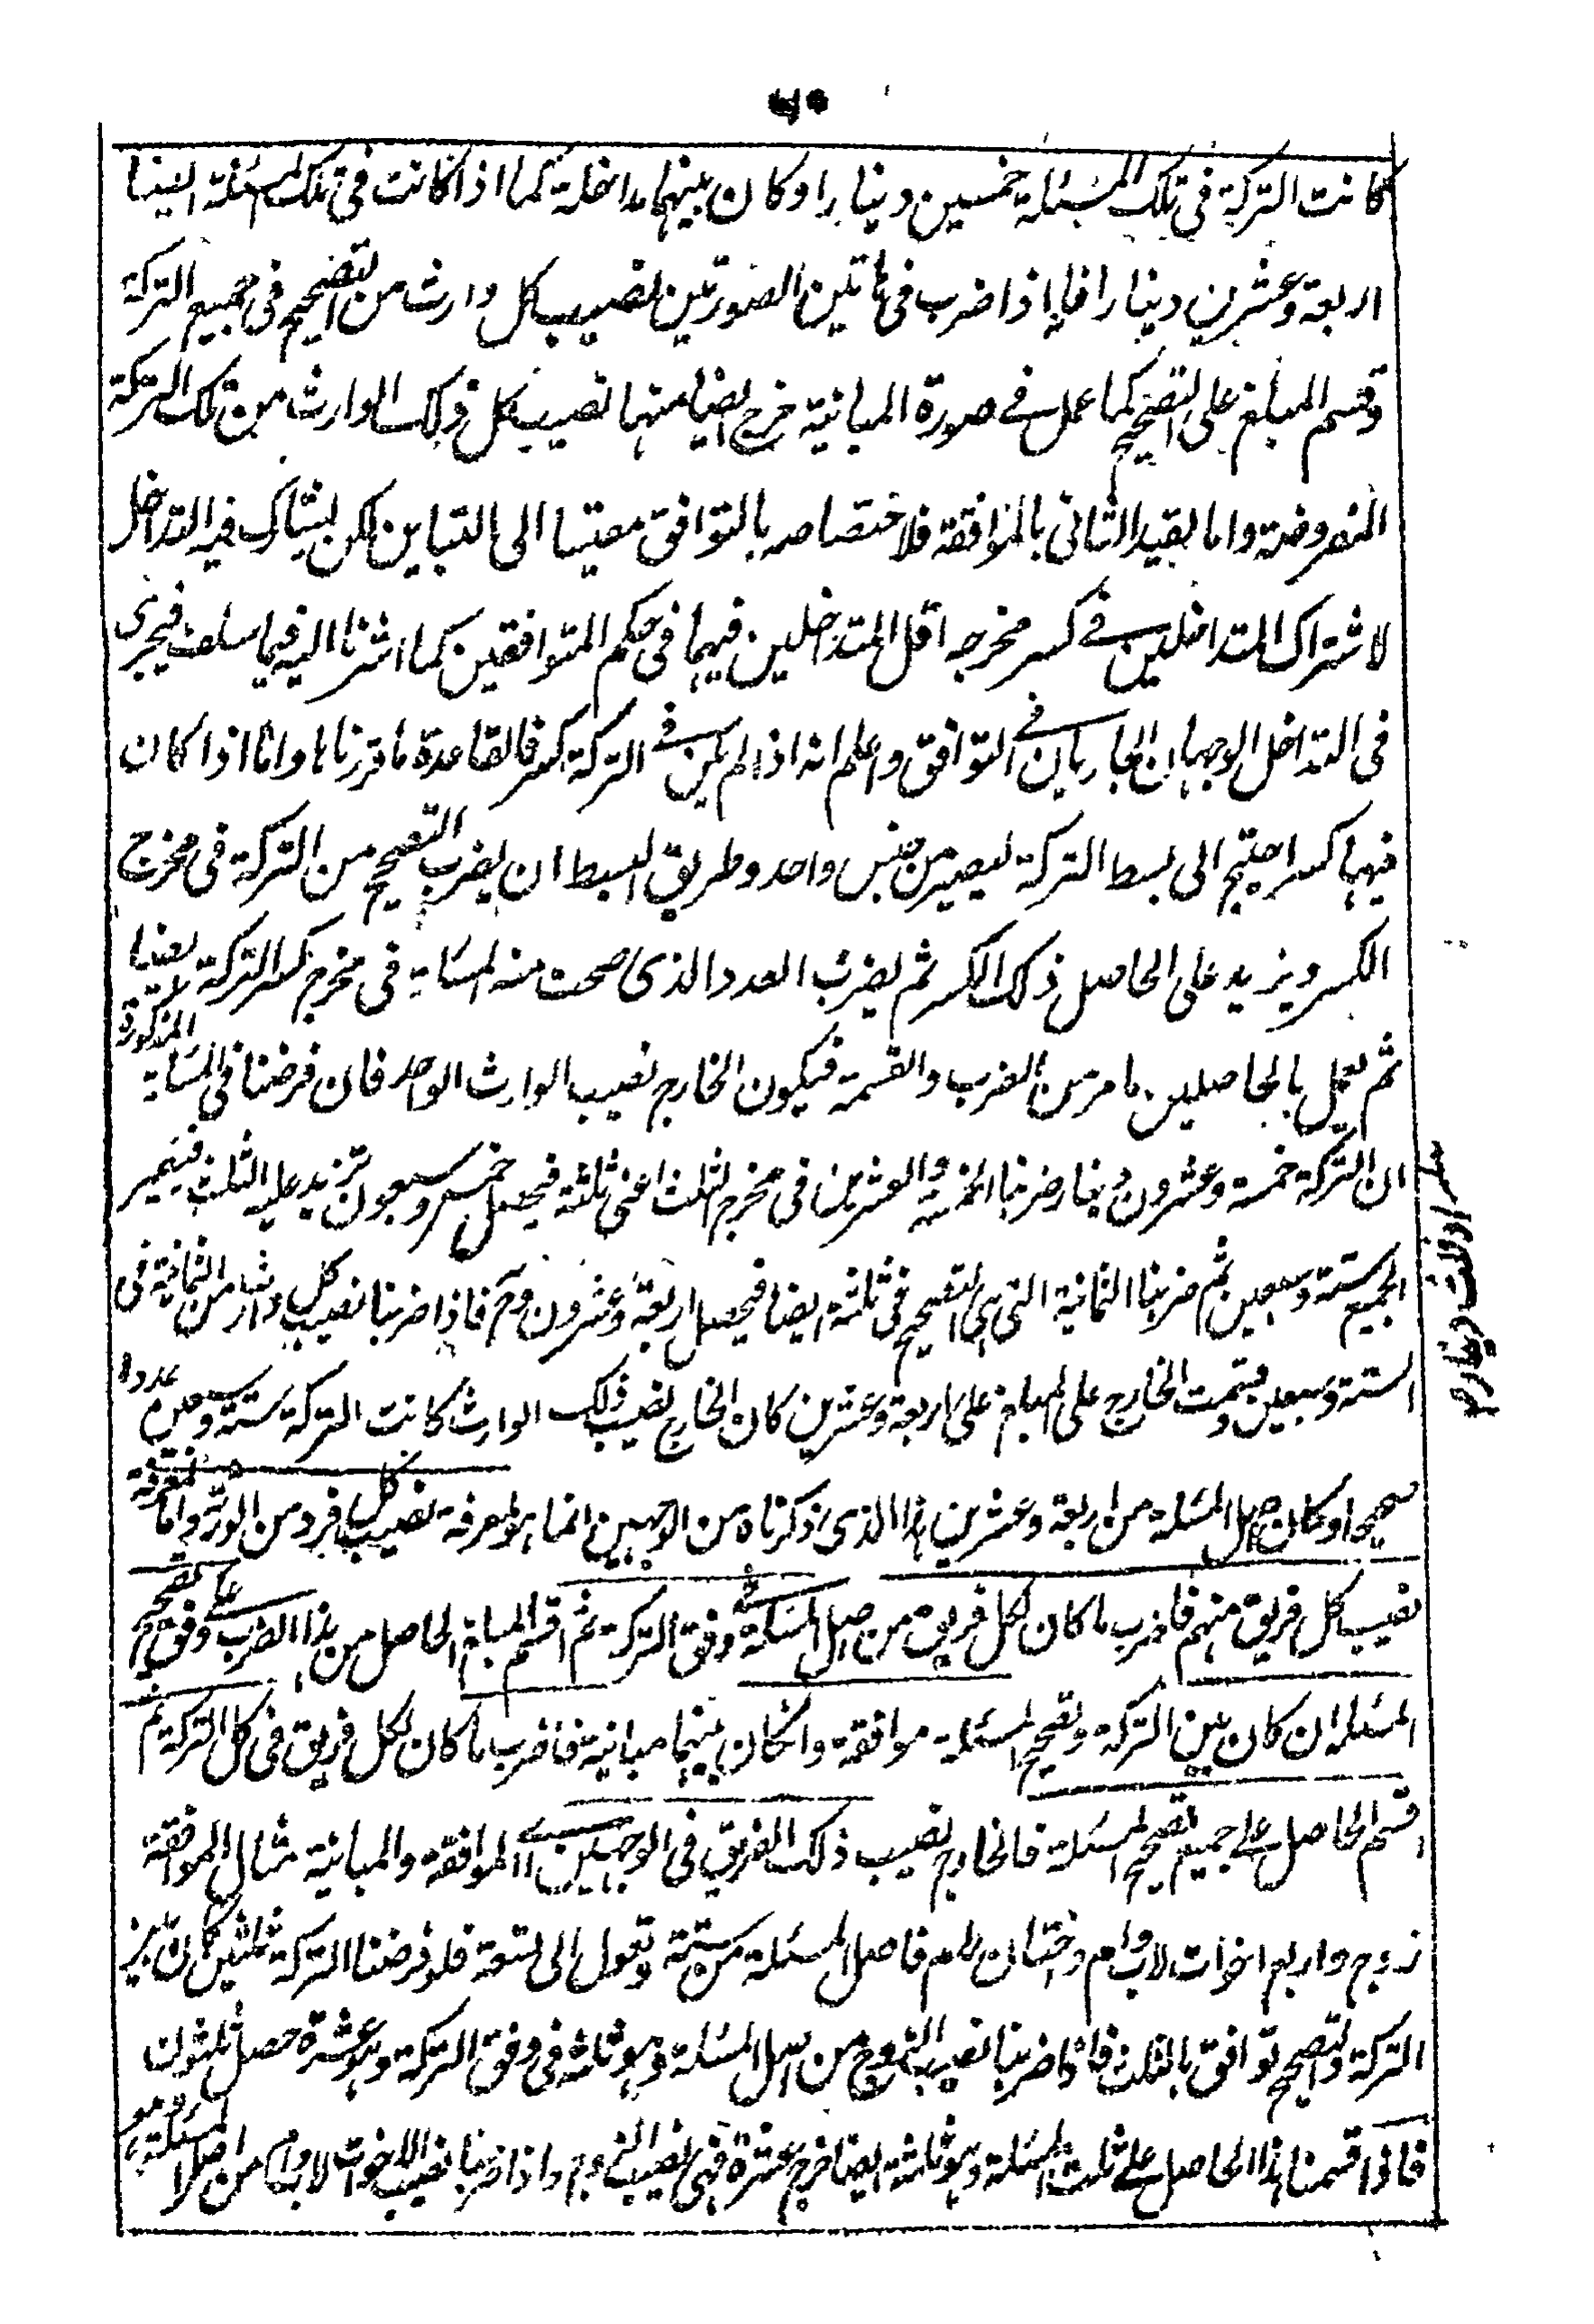 كانت التركة فى تلك المسئلة خمسين دينارا وكان بينهما مداخلة كما اذا كانت فى تلك المسئلة ايضا
اربعة وعشرين دينارا فانه اذا ضرب فى هاتين الصورتين نصيب كل وارث من التصحيح فى جميع التركة
وقسم المبلغ على التصحيح كما عمل فى صورة المباينة خرج ايضا منهما نصيب كل ذلك الوارث من تلك التركة
المفروضة واما بقيد الثانى بالموافقة فلاختصاصه بالتوافق مقيسا الى التباين لكن يشارك فيه التداخل
لاشتراك المتداخلين فى كسر مخرجه اقل المتداخلين فيهما فى حكم المتوافقين كما اشرنا اليه فيما سلف فيجرى
فى التداخل الوجهان الجاريان فى التوافق واعلم انه اذا لم يكن فى التركة كسر فالقاعدة ما قررناها واما اذا كان
فيها كسر احتيج الى بسط التركة ليصير من جنس واحد وطريق البسط ان يضرب الصحيح من التركة فى مخرج
الكسر ويزيد على الحاصل ذلك الكسر ثم يضرب العدد الذى صحت منه المسئلة فى مخرج كسر التركة ايضا
ثم يعمل بالحاصلين ما مر من الضرب والقسمة فيكون الخارج نصيب الوارث الواحد فان فرضنا فى المسئلة المذكورة
ان التركة خمسة وعشرون دينارا وثلث ضربنا الخمسة والعشرين فى مخرج الثلث اعنى ثلثة فيحصل خمس وسبعون تزيد عليه الثلث فيصير
الجميع ستة وسبعين ثم ضربنا الثمانية التى هى التصحيح فى ثلثة ايضا فيحصل اربعة وعشرون وح فاذا ضربنا نصيب كل وارث من الثمانية فى
الستة وسبعين وقسمت الخارج على المبلغ على اربعة وعشرين كان الخارج نصيب ذلك الوارث كانت التركة ستة وسبعين عددا
صحيحا وكان اصل المسئلة من اربعة وعشرين هذا الذى ذكرناه من الوجهين انما هو لمعرفة نصيب كل فرد من الورثة واما لمعرفة
نصيب كل فريق منهم فاضرب ما كان لكل فريق من اصل المسئلة فى وفق التركة ثم اقسم المبلغ الحاصل من هذا الضرب على وفق تصحيح
المسئلة ان كان بين التركة وتصحيح المسئلة موافقة وان كان بينهما مباينة فاضرب ما كان لكل فريق فى كل التركة ثم
اقسم الحاصل على جميع تصحيح المسئلة فالخارج نصيب ذلك الفريق فى الوجهين اى الموافقة والمباينة مثال الموافقة
زوج واربع اخوات لاب وام واختان لام فاصل المسئلة من ستة وتعول الى تسعة فلو فرضنا التركة ثلثين كان بين
التركة والتصحيح توافق بالثلث فاذا ضربنا نصيب الزوج من اصل المسئلة وهو ثلثة فى وفق التركة وهو عشرة حصل ثلثون
فاذا قسمنا هذا الحاصل على ثلث المسئلة وهو ثلثة ايضا خرج عشرة فهى نصيب الزوج واذا ضربنا نصيب الاخوات لاب وام من اصل المسئلة وهو